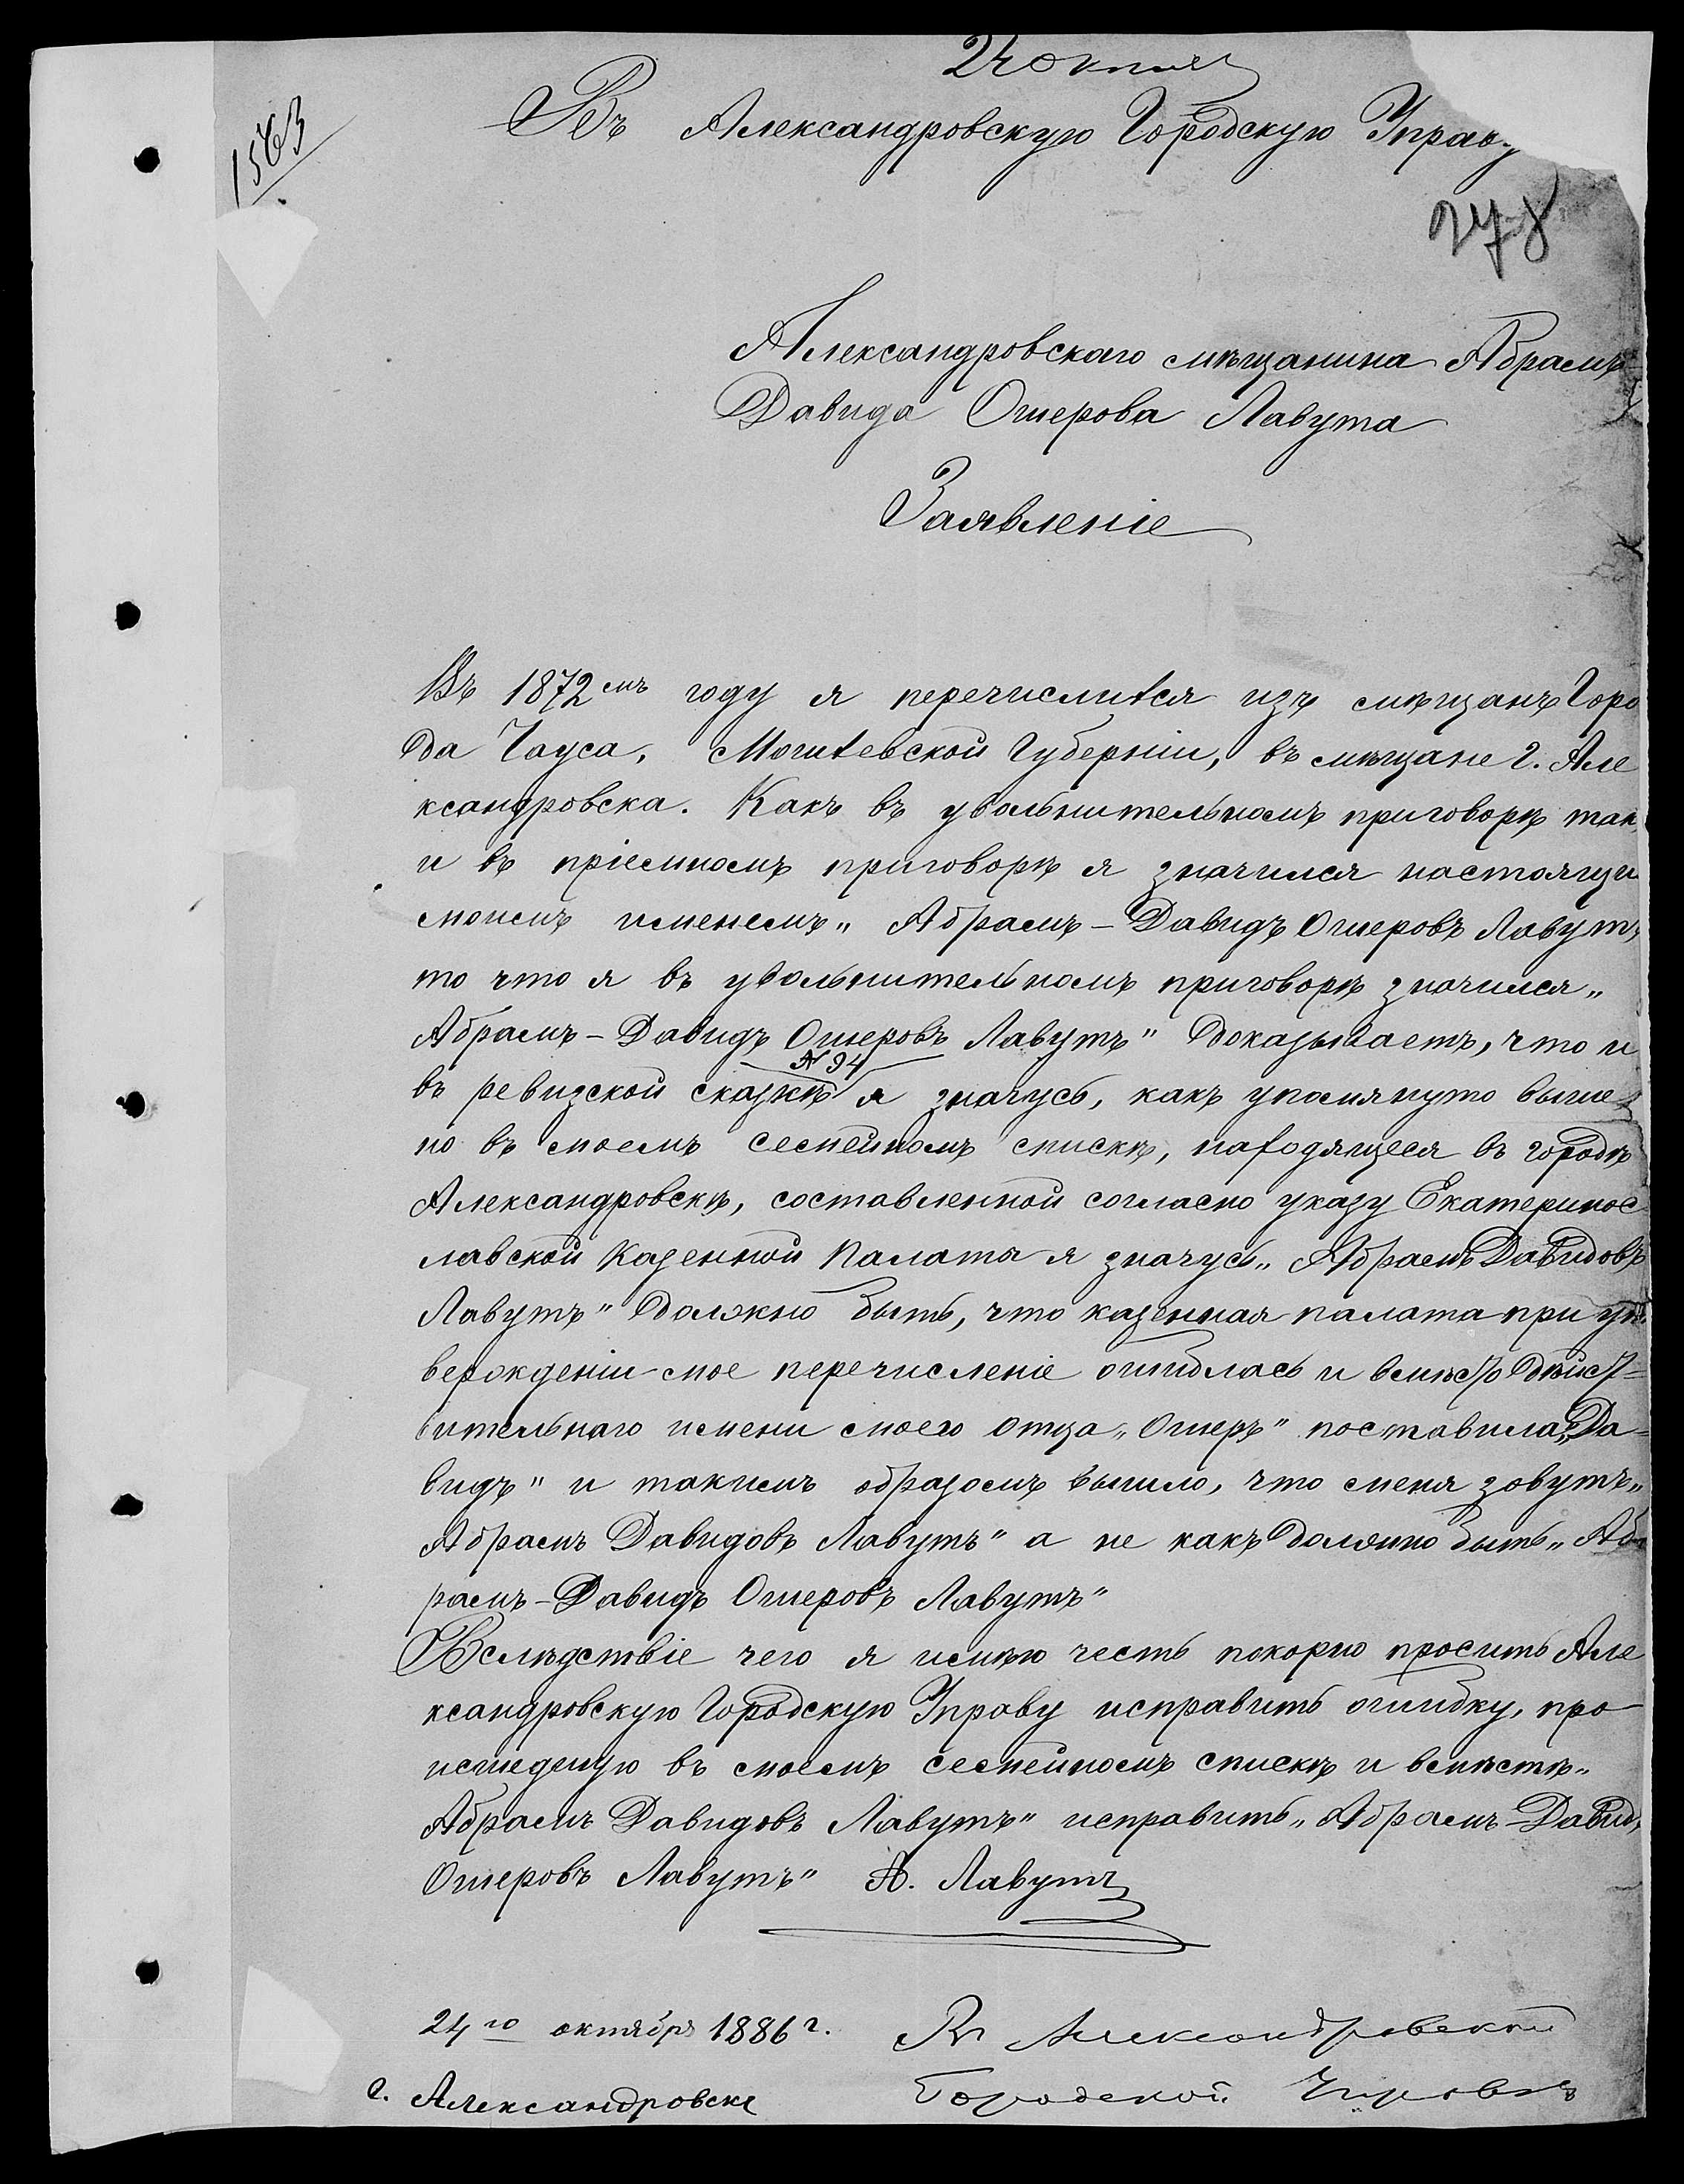 24 октя
1563
Въ Александровскую Городскую Управу
278
Александровскаго мѣщанина Абрамъ
Давида Ошерова Лавута
Заявленіе
Въ 1872мъ году я перечислился изъ мѣщанъ Горо
да Чауса, Могилевской Губерніи, въ мѣщане г. Але
ксандровска. Какъ въ увольнительномъ приговорѣ так
и въ пріемномъ приговорѣ я значился настоящи
моимъ именемъ „Абрамъ-Давидъ Ошеровъ Лавутъ
то что я въ увольнительномъ приговорѣ значился „
Абрамъ-Давидъ Ошеровъ Лавутъ" доказываетъ, что и
№ 94
въ ревизской сказкѣ я значусь, какъ упомянуто выше
но въ моемъ семейномъ спискѣ, находящееся въ городѣ
Александровскѣ, составленной согласно указу Екатеринос
лавской Казенной Палаты я значусь „Абрамъ Давидовъ
Лавутъ" должно быть, что казенная палата при ут
вержденіи мое перечисленіе ошиблась и вмѣсто дѣйст=
вительнаго имени моего отца „Ошеръ" поставила „Да=
видъ" и такимъ образомъ вышло, что меня зовутъ „
Абрамъ Давидовъ Лавутъ" а не какъ должно быть „Аб-
рамъ-Давидъ Ошеровъ Лавутъ"
Вслѣдствіе чего я имѣю честь покорно просить Але
ксандровскую Городскую Управу исправить ошибку, про
исшедшую въ моемъ семейномъ спискѣ и вмѣстѣ „
Абрамъ Давидовъ Лавутъ" исправить „Абрамъ-Давидъ
Ошеровъ Лавутъ" А. Лавутъ
24го октября 1886 г.
г. Александровскъ
Въ Александровской
Городской Управѣ